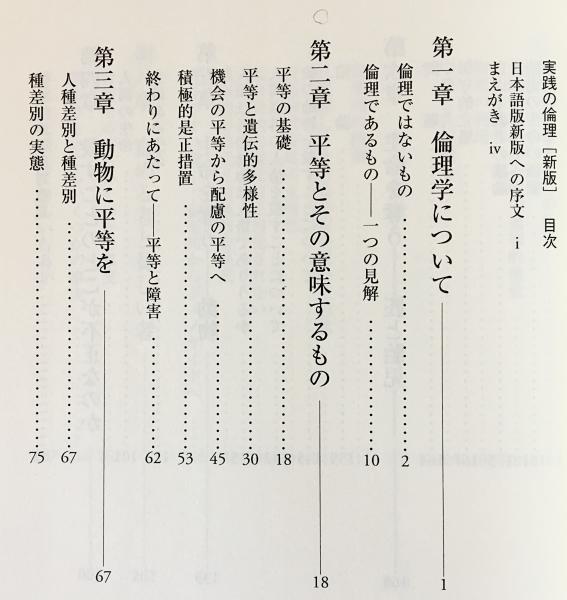 実践の倫理［新版］　目次
日本語版新版への序文　i
まえがき　iv
第一章　倫理学について――― 1
倫理ではないもの…………… 2
倫理であるもの――一つの見解…………… 10
第二章　平等とその意味するもの――― 18
平等の基礎…………… 18
平等と遺伝的多様性…………… 30
機会の平等から配慮の平等へ…………… 45
積極的是正措置…………… 53
終わりにあたって――平等と障害…………… 62
第三章　動物に平等を――― 67
人種差別と種差別…………… 67
種差別の実態…………… 75